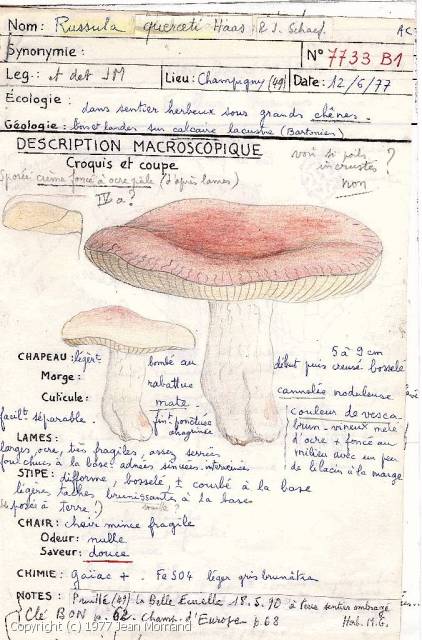 Nom: Russula querceti Haas & J. Schaef. AC
Synonymie:
N° 7733 B1
Leg.: et det JM Lieu: Champigny (49) Date: 12/6/77
Écologie: dans sentier herbeux sous grands chênes.
Géologie: landes sur calcaire lacustre (Bartonien)
DESCRIPTION MACROSCOPIQUE
Croquis et coupe
voir si poils incrustés ?
non
Sporée crème foncé à ocre pâle (d'après lames)
IV a?
CHAPEAU: légèrt bombé au début puis creusé bosselé 5 à 9 cm
Marge: rabattue cannelée noduleuse
Cuticule: mate
facilt séparable. fint ponctuée chagrinée
couleur de vesca.
brun-vineux mêlé
d'ocre + foncé au
milieu avec un peu
de lilacin à la marge
LAMES:
larges, ocre, très fragiles, assez serrées
fourchues à la base adnées sinuées interveinées
STIPE: difforme, bosselé, ± courbé à la base
légères taches brunissantes à la base
à terre!)
CHAIR: chair mince fragile
Odeur: nulle
Saveur: douce
CHIMIE: Gaïac +. FeSO4 léger gris brunâtre
NOTES: Pruillé (49) La Belle Eurille 18.5.90 à Paris sentier ombragé
Clé BON p. 62 Champ. d'Europe p. 68 Herb. M.G.
Copyright (c) 1977 Jean Mornand